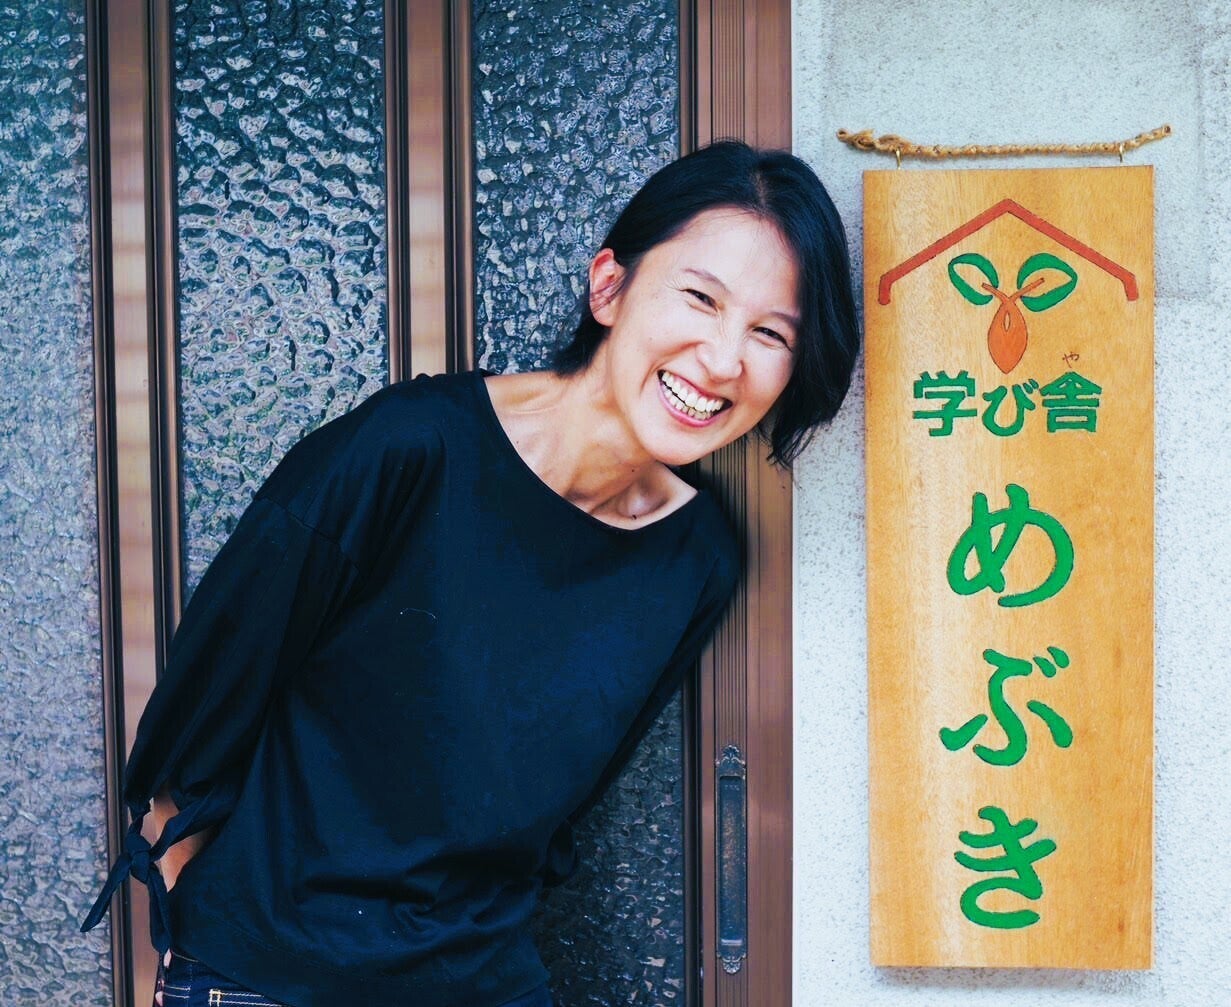 や
学び舎
めぶき